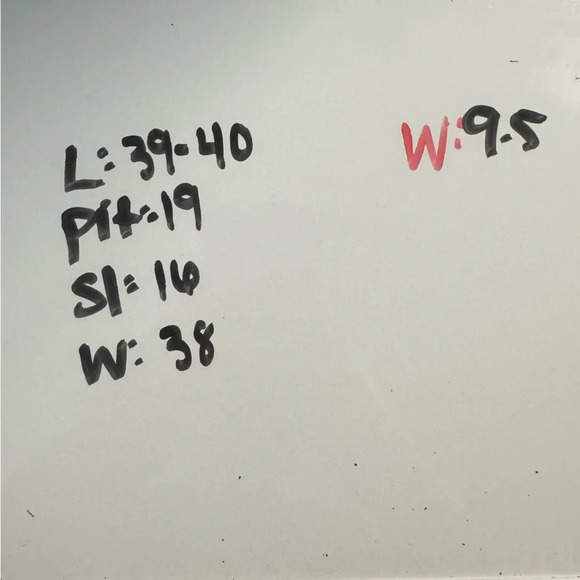 L: 39-40
Pit: 19
Sl: 16
W: 38
W: 9.5